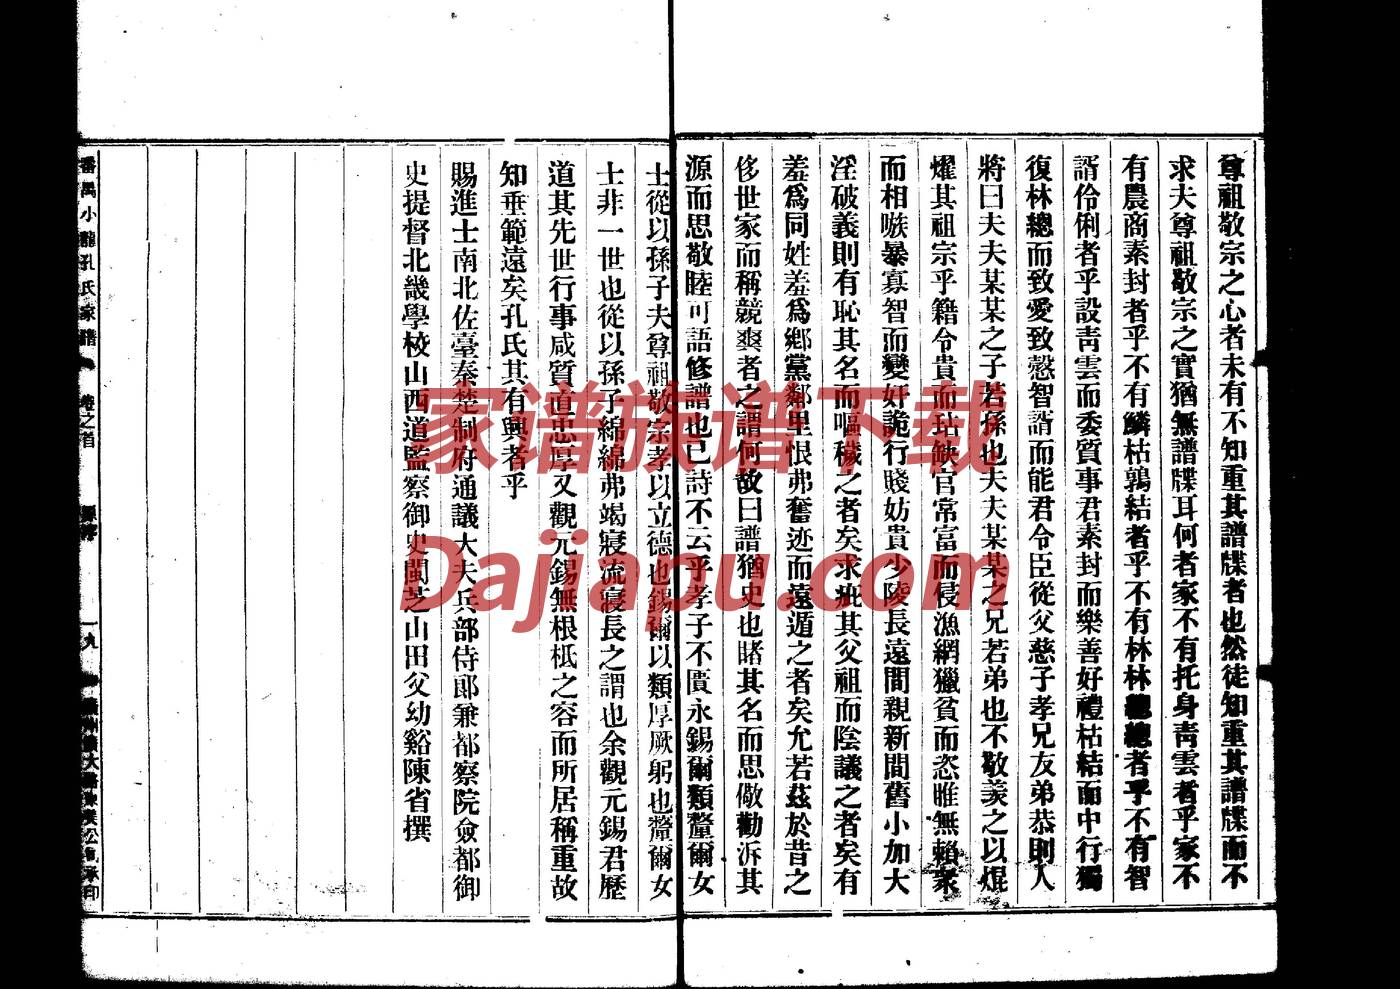 尊祖敬宗之心者未有不知重其譜牒者也然徒知重其譜牒而不
求夫尊祖敬宗之實猶無譜牒耳何者家不有托身靑雲者乎家不
有農商素封者乎不有鱗枯鶉結者乎不有林林總總者乎不有智
諝伶俐者乎設靑雲而委質事君素封而樂善好禮枯結而中行獨
復林總而致愛致慤智諝而能君令臣從父慈子孝兄友弟恭則人
將曰夫夫某某之子若孫也夫夫某某之兄若弟也不敬羡之以焜
燿其祖宗乎籍令貴而玷缺官常富而侵漁網獵貧而恣睢無賴衆
而相嗾暴寡智而變奸詭行賤妨貴少陵長遠間親新間舊小加大
淫破義則有恥其名而嘔穢之者矣求疵其父祖而陰議之者矣有
羞爲同姓羞爲鄕黨鄰里恨弗奮迹而遠遁之者矣允若茲於昔之
侈世家而稱競爽者之謂何故曰譜猶史也睹其名而思儆勸泝其
源而思敬睦可語修譜也已詩不云乎孝子不匱永錫爾類釐爾女
士從以孫子夫尊祖敬宗孝以立德也錫爾以類厚厥躬也釐爾女
士非一世也從以孫子綿綿弗竭寢流寢長之謂也余觀元錫君歷
道其先世行事咸質直忠厚又觀元錫無根柢之容而所居稱重故
知垂範遠矣孔氏其有興者乎
賜進士南北佐臺秦楚制府通議大夫兵部侍郎兼都察院僉都御
史提督北畿學校山西道監察御史閩芝山田父幼谿陳省撰
番禺小龍孔氏家譜 卷之首 一九
家谱族谱下载
Dajiapu.com